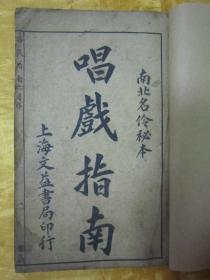 南北名伶秘本
唱戲指南
上海文益書局印行